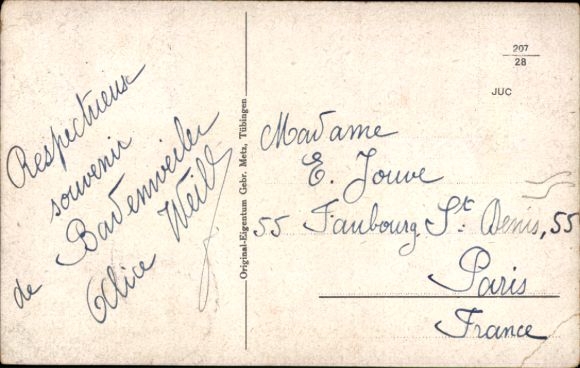 Respectueux
souvenir
de Badenweiler
Alice Weill
Original-Eigentum Gebr. Metz, Tübingen
207
28
JUC
Madame
E. Jouve
55 Faubourg St. Denis, 55
Paris
France